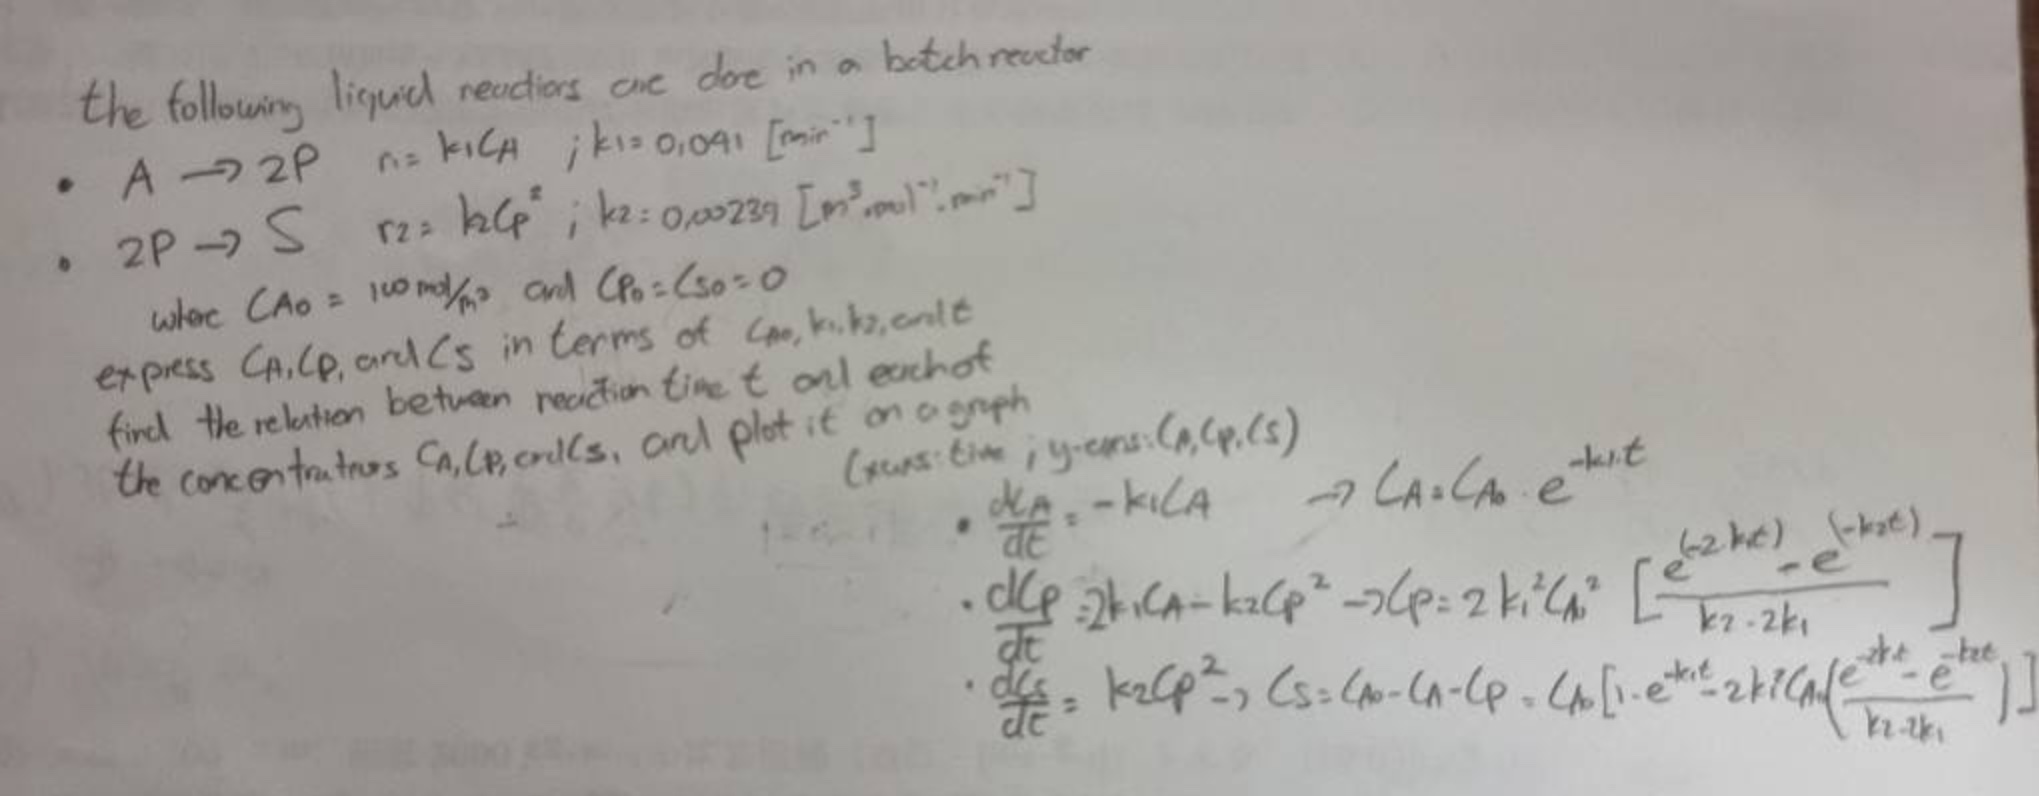 the following liquid reactions are done in a batch reactor
• A → 2P r1 = k1CA ; k1 = 0,091 [min⁻¹]
• 2P → S r2 = k2Cp² ; k2 = 0,00239 [m³.mol⁻¹.min⁻¹]
where CA0 = 100 mol/m³ and CP0 = CS0 = 0
express CA, CP, and CS in terms of CA0, k1, k2, and t
find the relation between reaction time t and each of
the concentrations CA, CP, and CS, and plot it on a graph
(x axis: time ; y-axis: CA, CP, CS)
• dCA/dt = -k1CA → CA = CA0 . e^(-k1.t)
• dCp/dt = 2k1CA - k2Cp² → Cp = 2k1²CA0² [(e^(-2k1t) - e^(-k2t))/(k2-2k1)]
• dCs/dt = k2Cp² → Cs = CA0 - CA - CP = CA0 [1 - e^(-k1t) - 2k1²CA0 ((e^(-2k1t) - e^(-k2t))/(k2-2k1))]